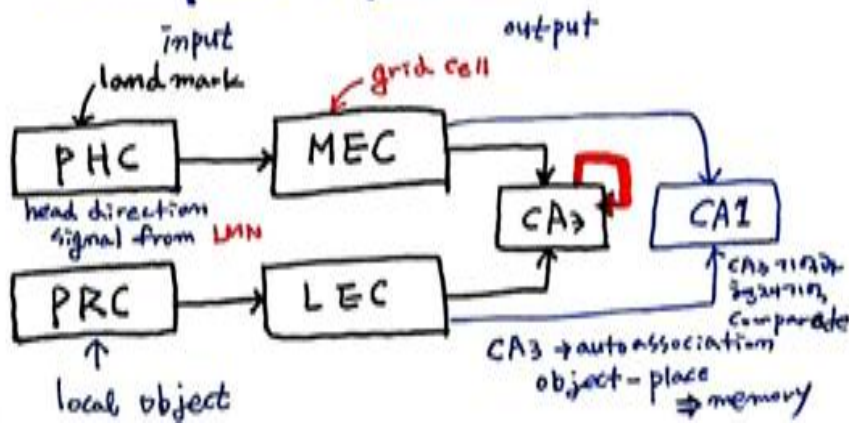 input
output
landmark
grid cell
PHC
MEC
head direction
signal from LMN
CA3
CA1
PRC
LEC
CA3 기억과
comparator
CA3 → autoassociation
object - place
⇒ memory
local object